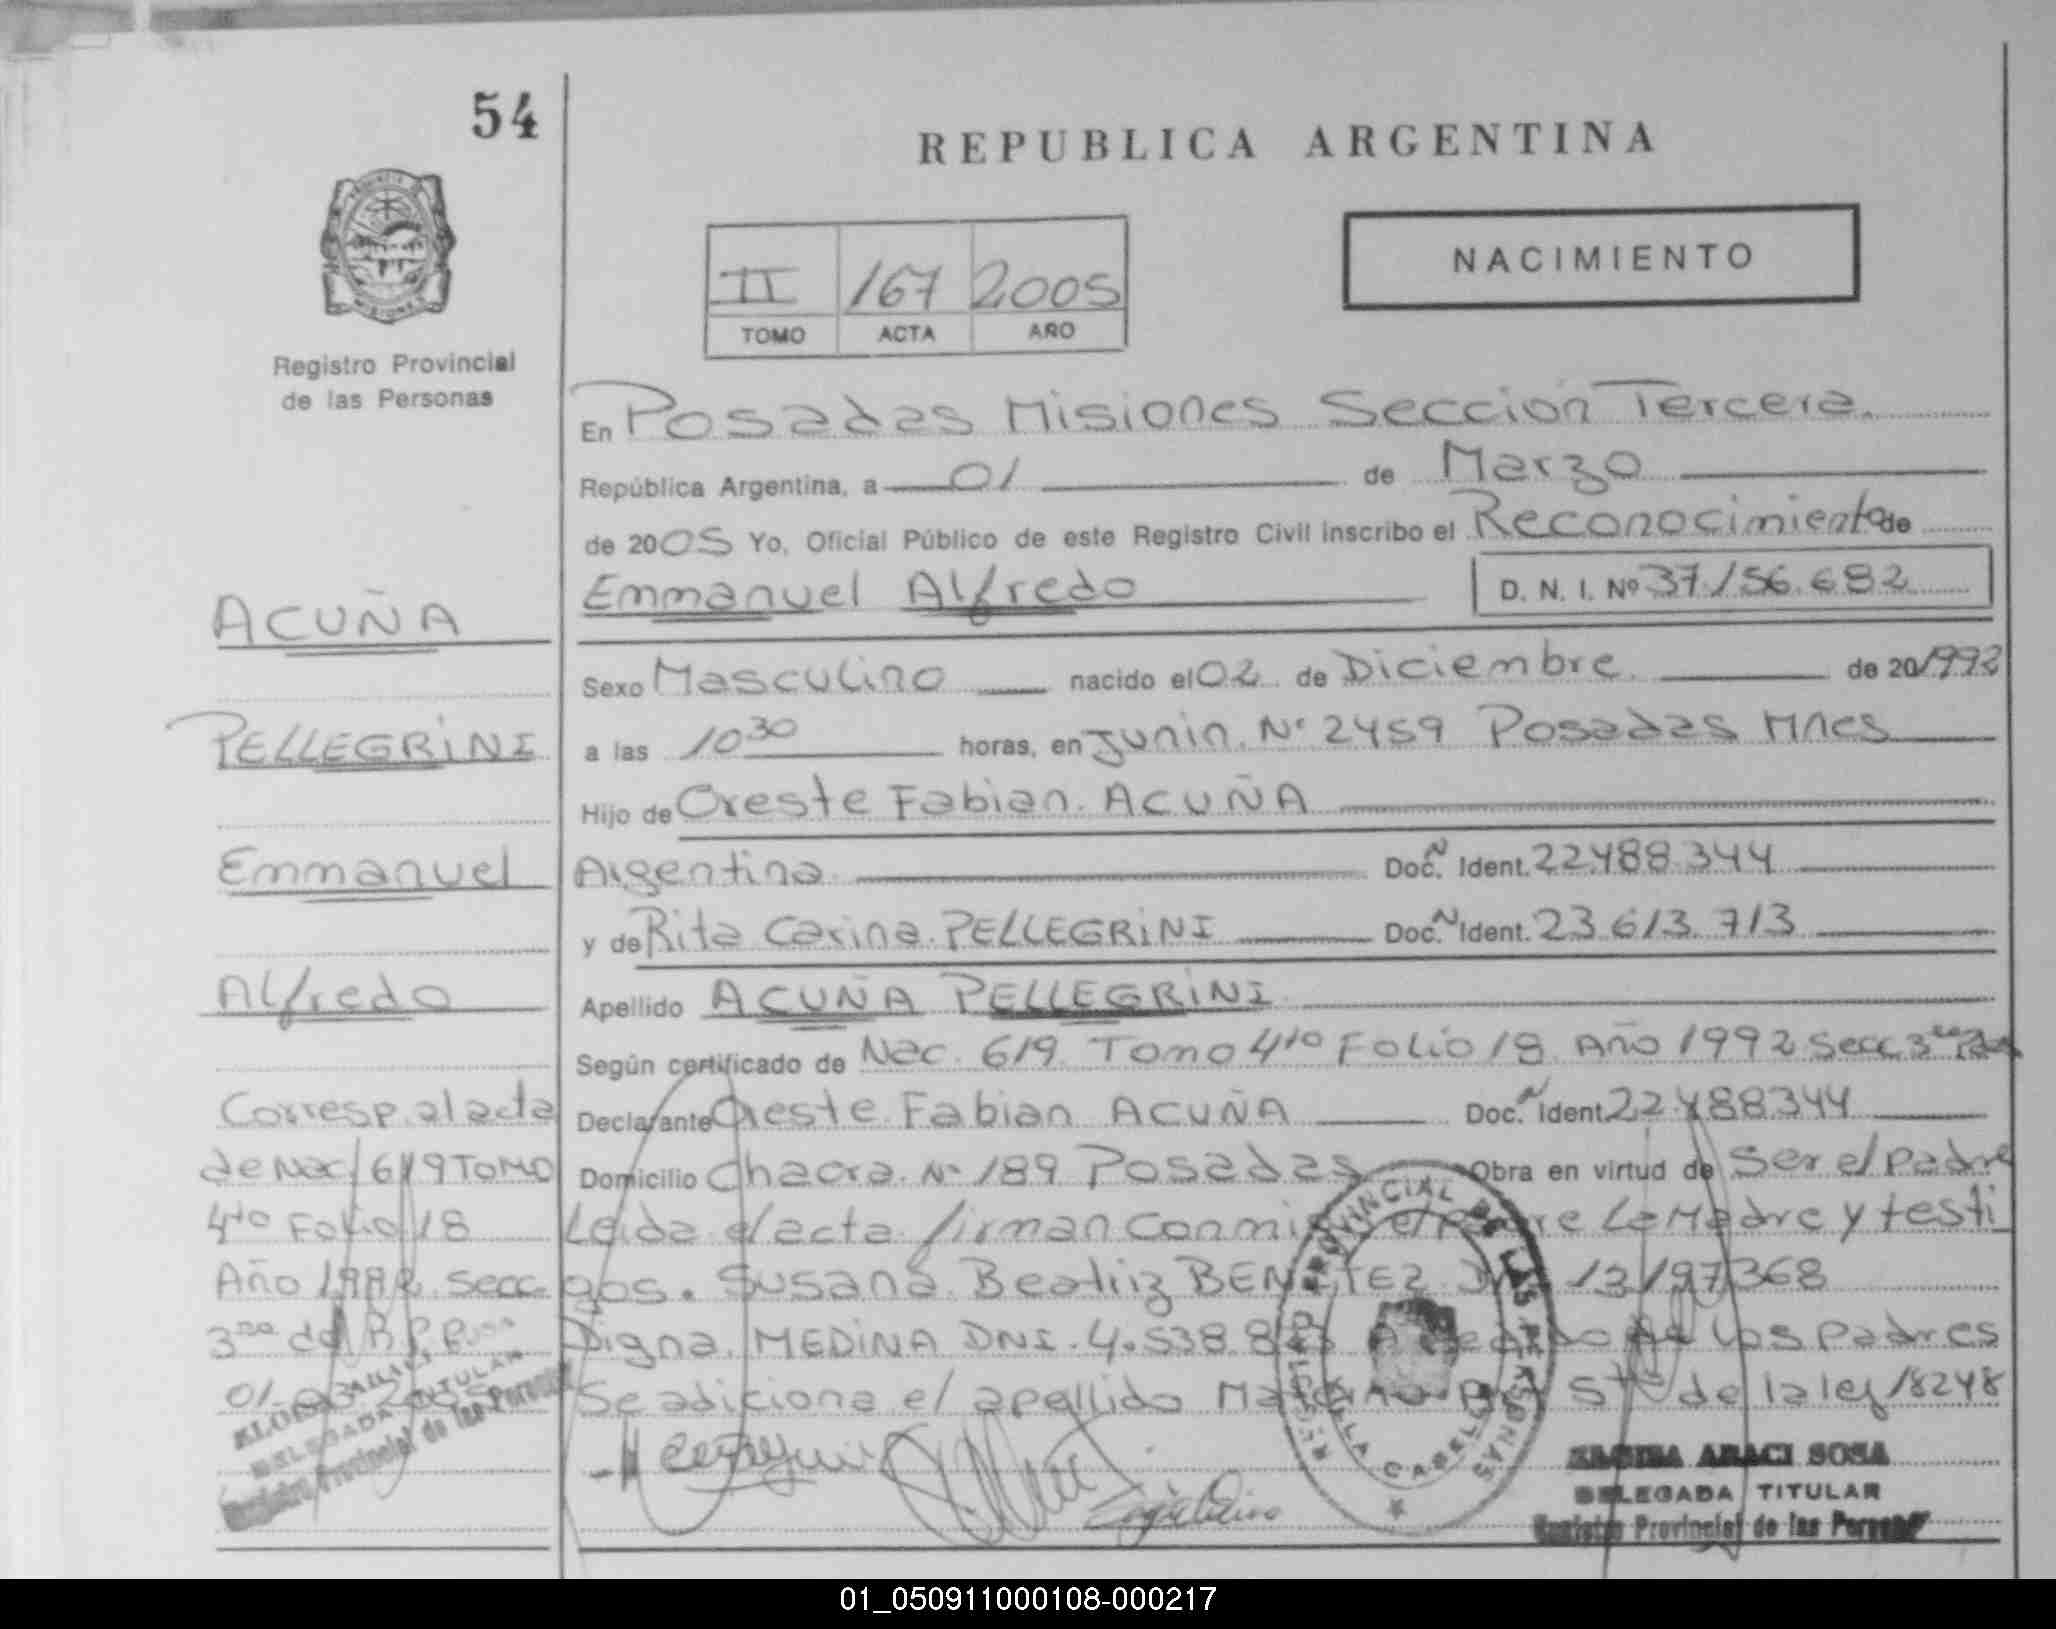 54
REPUBLICA ARGENTINA
NACIMIENTO
II 167 2005
TOMO ACTA AÑO
Registro Provincial
de las Personas
En Posadas Misiones Sección Tercera
República Argentina, a 01 de Marzo
de 2005 Yo, Oficial Público de este Registro Civil inscribo el Reconocimiento de
Emmanuel Alfredo D. N. I. Nº 37156.682
ACUÑA
PELLEGRINI
Emmanuel
Alfredo
Corresp. al acta
de Nac. 619 TOMO
4to Folio 18
Año 1992 Secc.
3ra del R.P.P.
01-03-2005
Sexo Masculino nacido el 02 de Diciembre de 20 1992
a las 10 30 horas, en Junin Nº 2459 Posadas Mnes
Hijo de Oreste Fabian ACUÑA
Argentina Doc. Ident. 22.488.344
y de Rita Carina PELLEGRINI Doc. Ident. 23.613.713
Apellido ACUÑA PELLEGRINI
Según certificado de Nac. 619 Tomo 4to Folio 18 Año 1992 Secc 3ra
Declarante Oreste Fabian ACUÑA Doc. Ident. 22488344
Domicilio Chacra Nº 189 Posadas Obra en virtud de Ser el padre
Leida el acta firman conmigo el padre La Madre y testi
gos. Susana Beatriz BENITEZ DNI 13197368
Digna MEDINA DNI. 4.538.8 A pedido de Los padres
Se adiciona el apellido Materno 5to de la ley 18248
REGISTRO PROVINCIAL DE LAS PERSONAS
VILLA CABELLO
DELEGADA TITULAR
Registro Provincial de las Personas
ARACI SOSA
DELEGADA TITULAR
Registro Provincial de las Personas
01_050911000108-000217